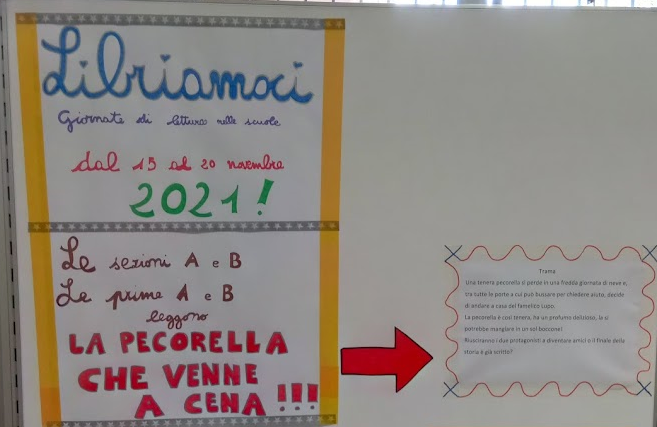 Libriamoci
Giornate di lettura nelle scuole
dal 15 al 20 novembre
2021!
Le sezioni A e B
Le prime A e B
leggono
LA PECORELLA
CHE VENNE
A CENA !!!
Trama
Una tenera pecorella si perde in una fredda giornata di neve e,
tra tutte le porte a cui può bussare per chiedere aiuto, decide
di andare a casa del famelico Lupo.
La pecorella è così tenera, ha un profumo delizioso, la si
potrebbe mangiare in un sol boccone!
Riusciranno i due protagonisti a diventare amici o il finale della
storia è già scritto?